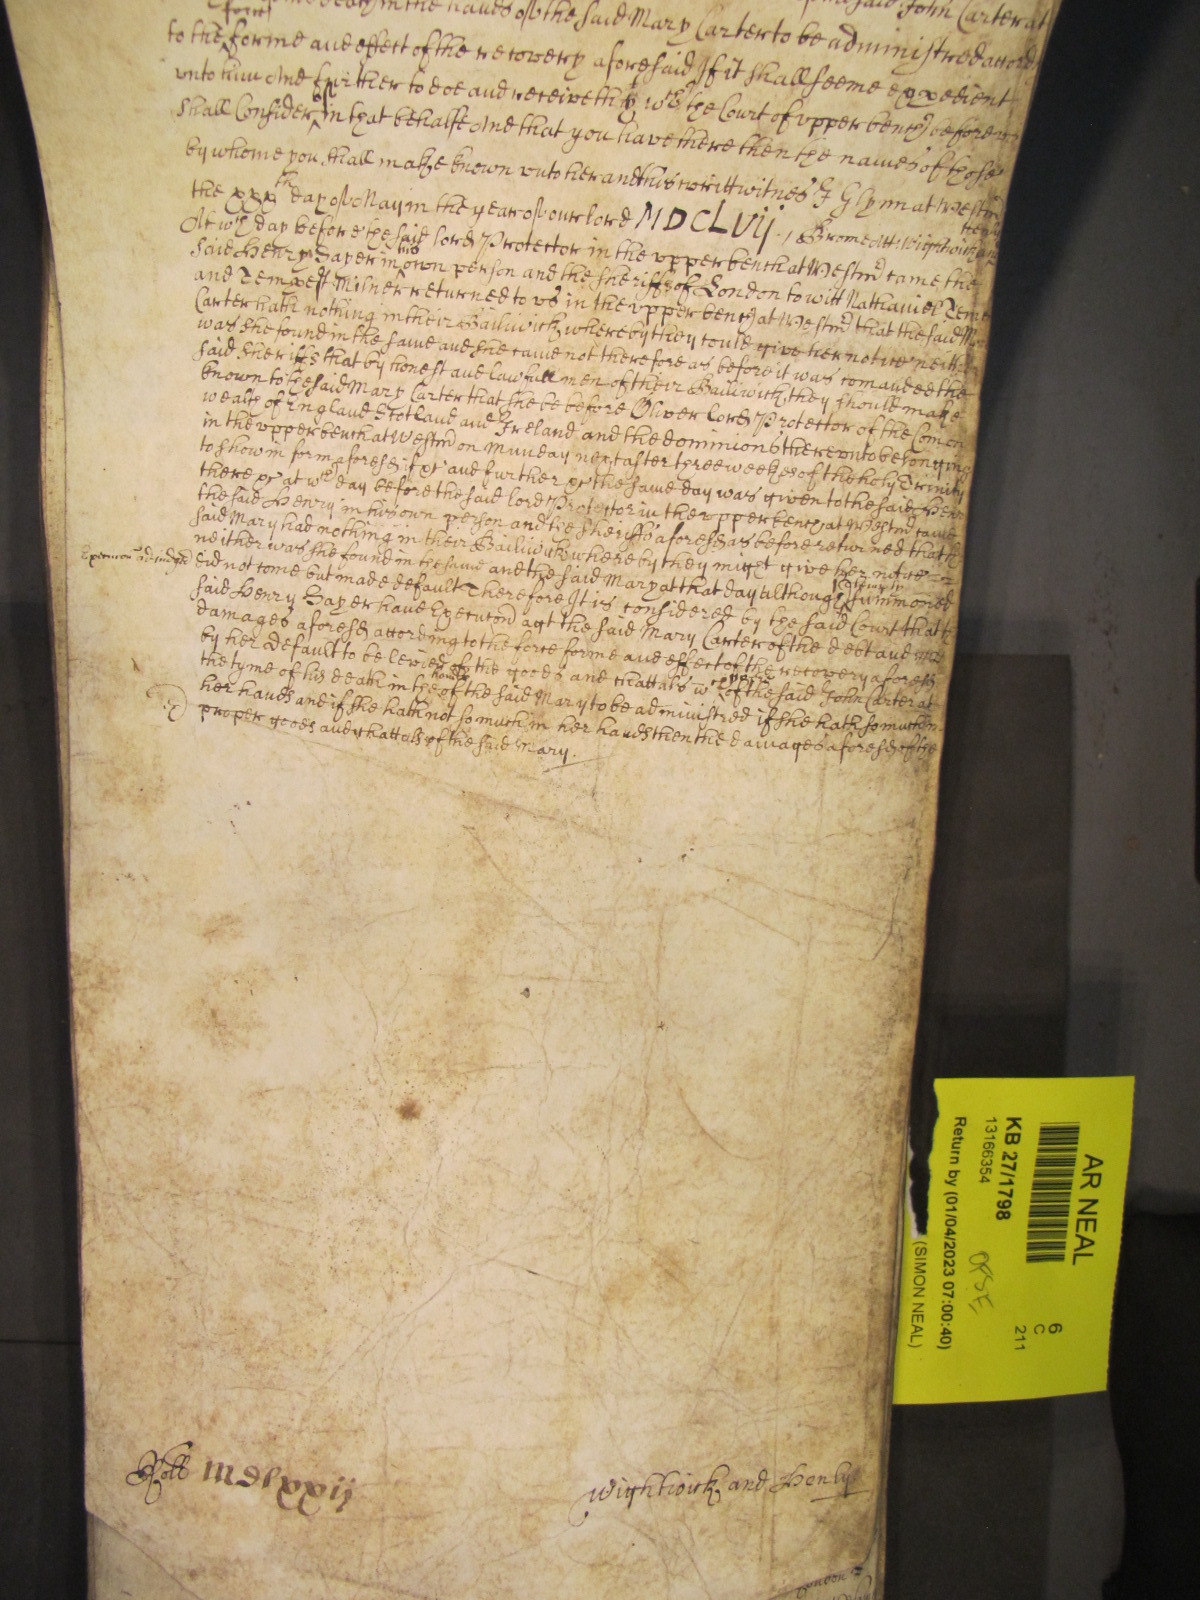 in the hands of the said Mary Carter to be administred accord
force
to the forme and effect of the recovery aforesaid If it shall seeme expedient
unto him And further to doe and receive the wch the Court of upper bench before
shall Consider in that behalfe And that you have there then the names of those
by whome you shall make known unto her and this writt witnes J Glynn at Westm
the xxxth day of May in the year of our lord MDCLVij Brome Att Wightwick
At wch day before the said lord Protector in the upper bench at Westm came the
said Henry Baper in his own person and the sheriffs of London to witt Nathaniel Tem
and Tempest Milner returned to us in the upper bench at Westm that the said M
Carter hath nothing in their Bailiwick whereby they could give her notice neith
was she found in the same and she came not therefore as before it was comanded the
said Sheriffs that by honest and lawfull men of their Bailiwick they should make
known to the said Mary Carter that she be before Oliver lord Protector of the Comon
wealth of England Scotland and Ireland and the dominions thereunto belonging
in the upper bench at Westm on Munday next after three weekes of the holy Trinity
to show in form aforesd if &c and further &c the same day was given to the said Hen
there &c at wch day before the said lord Protector in the upper bench at Westm came
the said Henry in his own person and the Sheriffs aforesd as before returned that th
said Mary had nothing in their Bailiwick whereby they might give her notice
neither was she found in the same and the said Mary at that day although solemnly summoned
did not come but made default Therefore It is considered by the said Court that th
said Henry Baper have Execucon agt the said Mary Carter of the debt and
damages aforesd according to the force forme and effect of the recovery aforesd
by her default to be levied of the goods and chattals wch were of the said John Carter at
the tyme of his death in the hands of the said Mary to be administred if she hath so much in
her hands and if she hath not so much in her hands then the damages aforesd of the
proper goods and chattals of the said Mary.
Roll mdlxxij
Wightwick and Henly
London
AR NEAL
6
C
211
KB 27/1798
13166354
Return by (01/04/2023 07:00:40)
(SIMON NEAL)